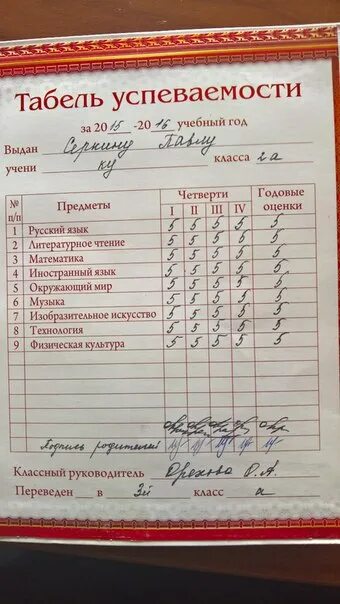 Табель успеваемости
за 2015-2016 учебный год
Выдан Серкину Павлу
учени ку класса 2а
№ п/п Предметы Четверти Годовые оценки
I II III IV
1 Русский язык 5 5 5 5 5
2 Литературное чтение 5 5 5 5 5
3 Математика 5 5 5 5 5
4 Иностранный язык 5 5 5 5 5
5 Окружающий мир 5 5 5 5 5
6 Музыка 5 5 5 5 5
7 Изобразительное искусство 5 5 5 5 5
8 Технология 5 5 5 5 5
9 Физическая культура 5 5 5 5 5
Подпись родителей
Классный руководитель Орехова О.А.
Переведен в 3й класс а